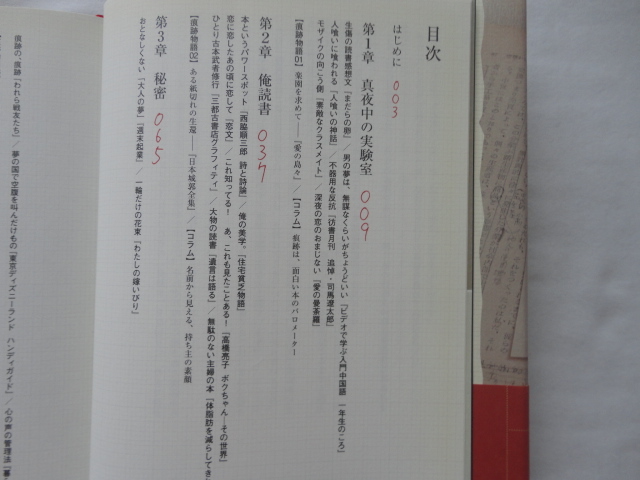 目次
はじめに 003
第1章 真夜中の実験室 009
生傷の読書感想文『まだらの卵』／男の夢は、無謀なくらいがちょうどいい『ビデオで学ぶ入門中国語 一年生のころ』
人喰いに喰われる『人喰いの神話』／不器用な反抗『彷書月刊 追悼・司馬遼太郎』
モザイクの向こう側『素敵なクラスメイト』／深夜の恋のおまじない『愛の曼荼羅』
【痕跡物語01】楽園を求めて――『愛の島々』／【コラム】痕跡は、面白い本のバロメーター
第2章 俺読書 037
本というパワースポット『西脇順三郎 詩と詩論』／俺の美学。『住宅貧乏物語』
恋に恋したあの頃に恋して『恋文』／これ知ってる！ あ、これも見たことある！『高橋亮子 ボクちゃん―その世界』
ひとり古本武者修行『三都古書店グラフィティ』／大物の読書『遺言は語る』／無駄のない主婦の本『体脂肪を減らしてき
【痕跡物語02】ある紙切れの生還――『日本城郭全集』／【コラム】名前から見える、持ち主の素顔
第3章 秘密 065
おとなしくない、『大人の夢』『週末起業』／一輪だけの花束『わたしの嫁いびり』
痕跡の、痕跡『われら戦友たち』／夢の国で空腹を叫んだけもの『東京ディズニーランド ハンディガイド』／心の声の管理法『